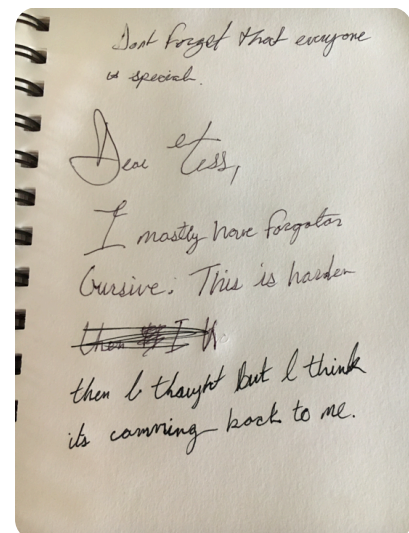 Dont forget that everyone
is special.
Dear Tess,
I mostly have forgoton
Cursive. This is harder
then I
then I thought but I think
its comming back to me.